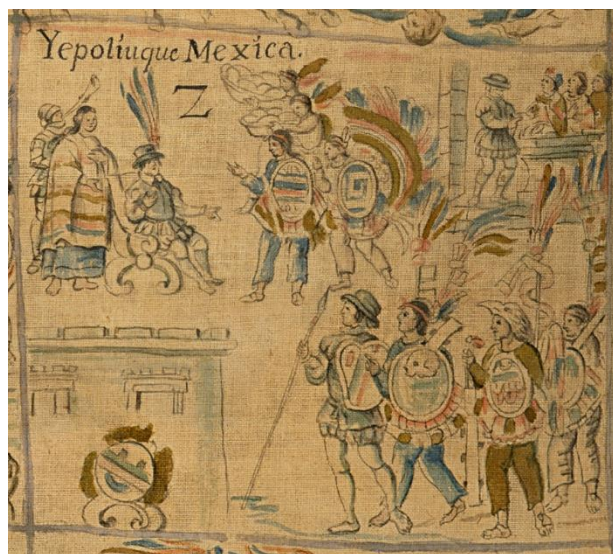 Yepoliuque Mexica.
Z